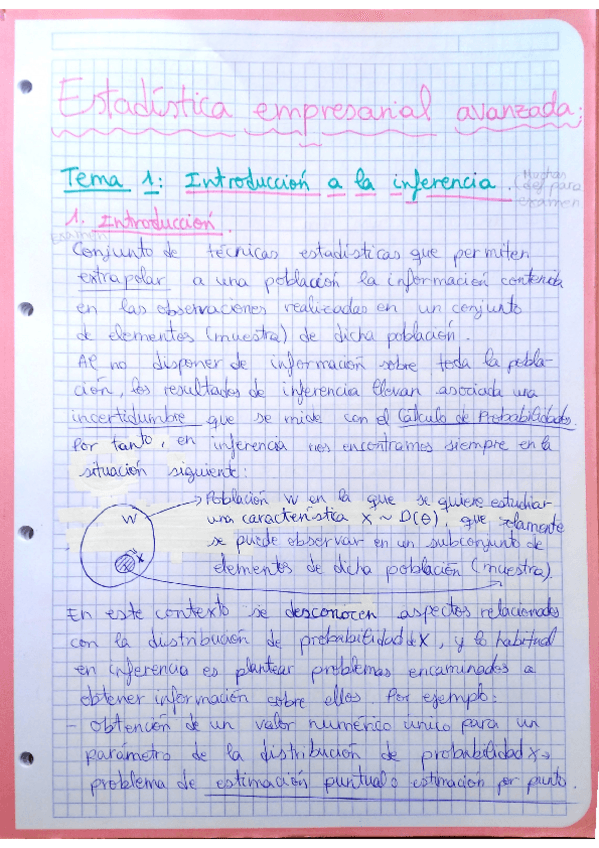 Estadística empresarial avanzada:
Tema 1: Introducción a la inferencia.
examen
1. Introducción.
Examen
Conjunto de técnicas estadísticas que permiten
extrapolar a una población la información contenida
en las observaciones realizadas en un conjunto
de elementos (muestra) de dicha población.
Al no disponer de información sobre toda la pobla-
ción, los resultados de inferencia llevan asociada una
incertidumbre que se mide con el Cálculo de Probabilidades.
Por tanto, en inferencia nos encontramos siempre en la
situación siguiente:
Población W en la que se quiere estudiar
una característica X ~ D(θ), que solamente
se puede observar en un subconjunto de
elementos de dicha población (muestra).
W
x
En este contexto se desconocen aspectos relacionados
con la distribución de probabilidad de X, y lo habitual
en inferencia es plantear problemas encaminados a
obtener información sobre ellos. Por ejemplo:
- Obtención de un valor numérico único para un
parámetro de la distribución de probabilidad X →
problema de estimación puntual o estimación por punto.